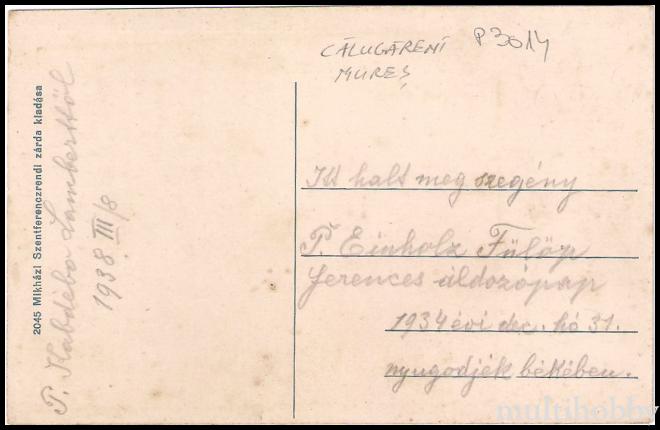 CĂLUGĂRENI P3014
MUREȘ
2045 Mikházi Szentferenczrendi zárda kiadása
P. Kabdebó Lamberttől
1938. III/8
Itt halt meg szegény
P. Einholz Fülöp
ferences áldozópap
1934 évi dec. hó 31.
nyugodjék békében.
multihobby